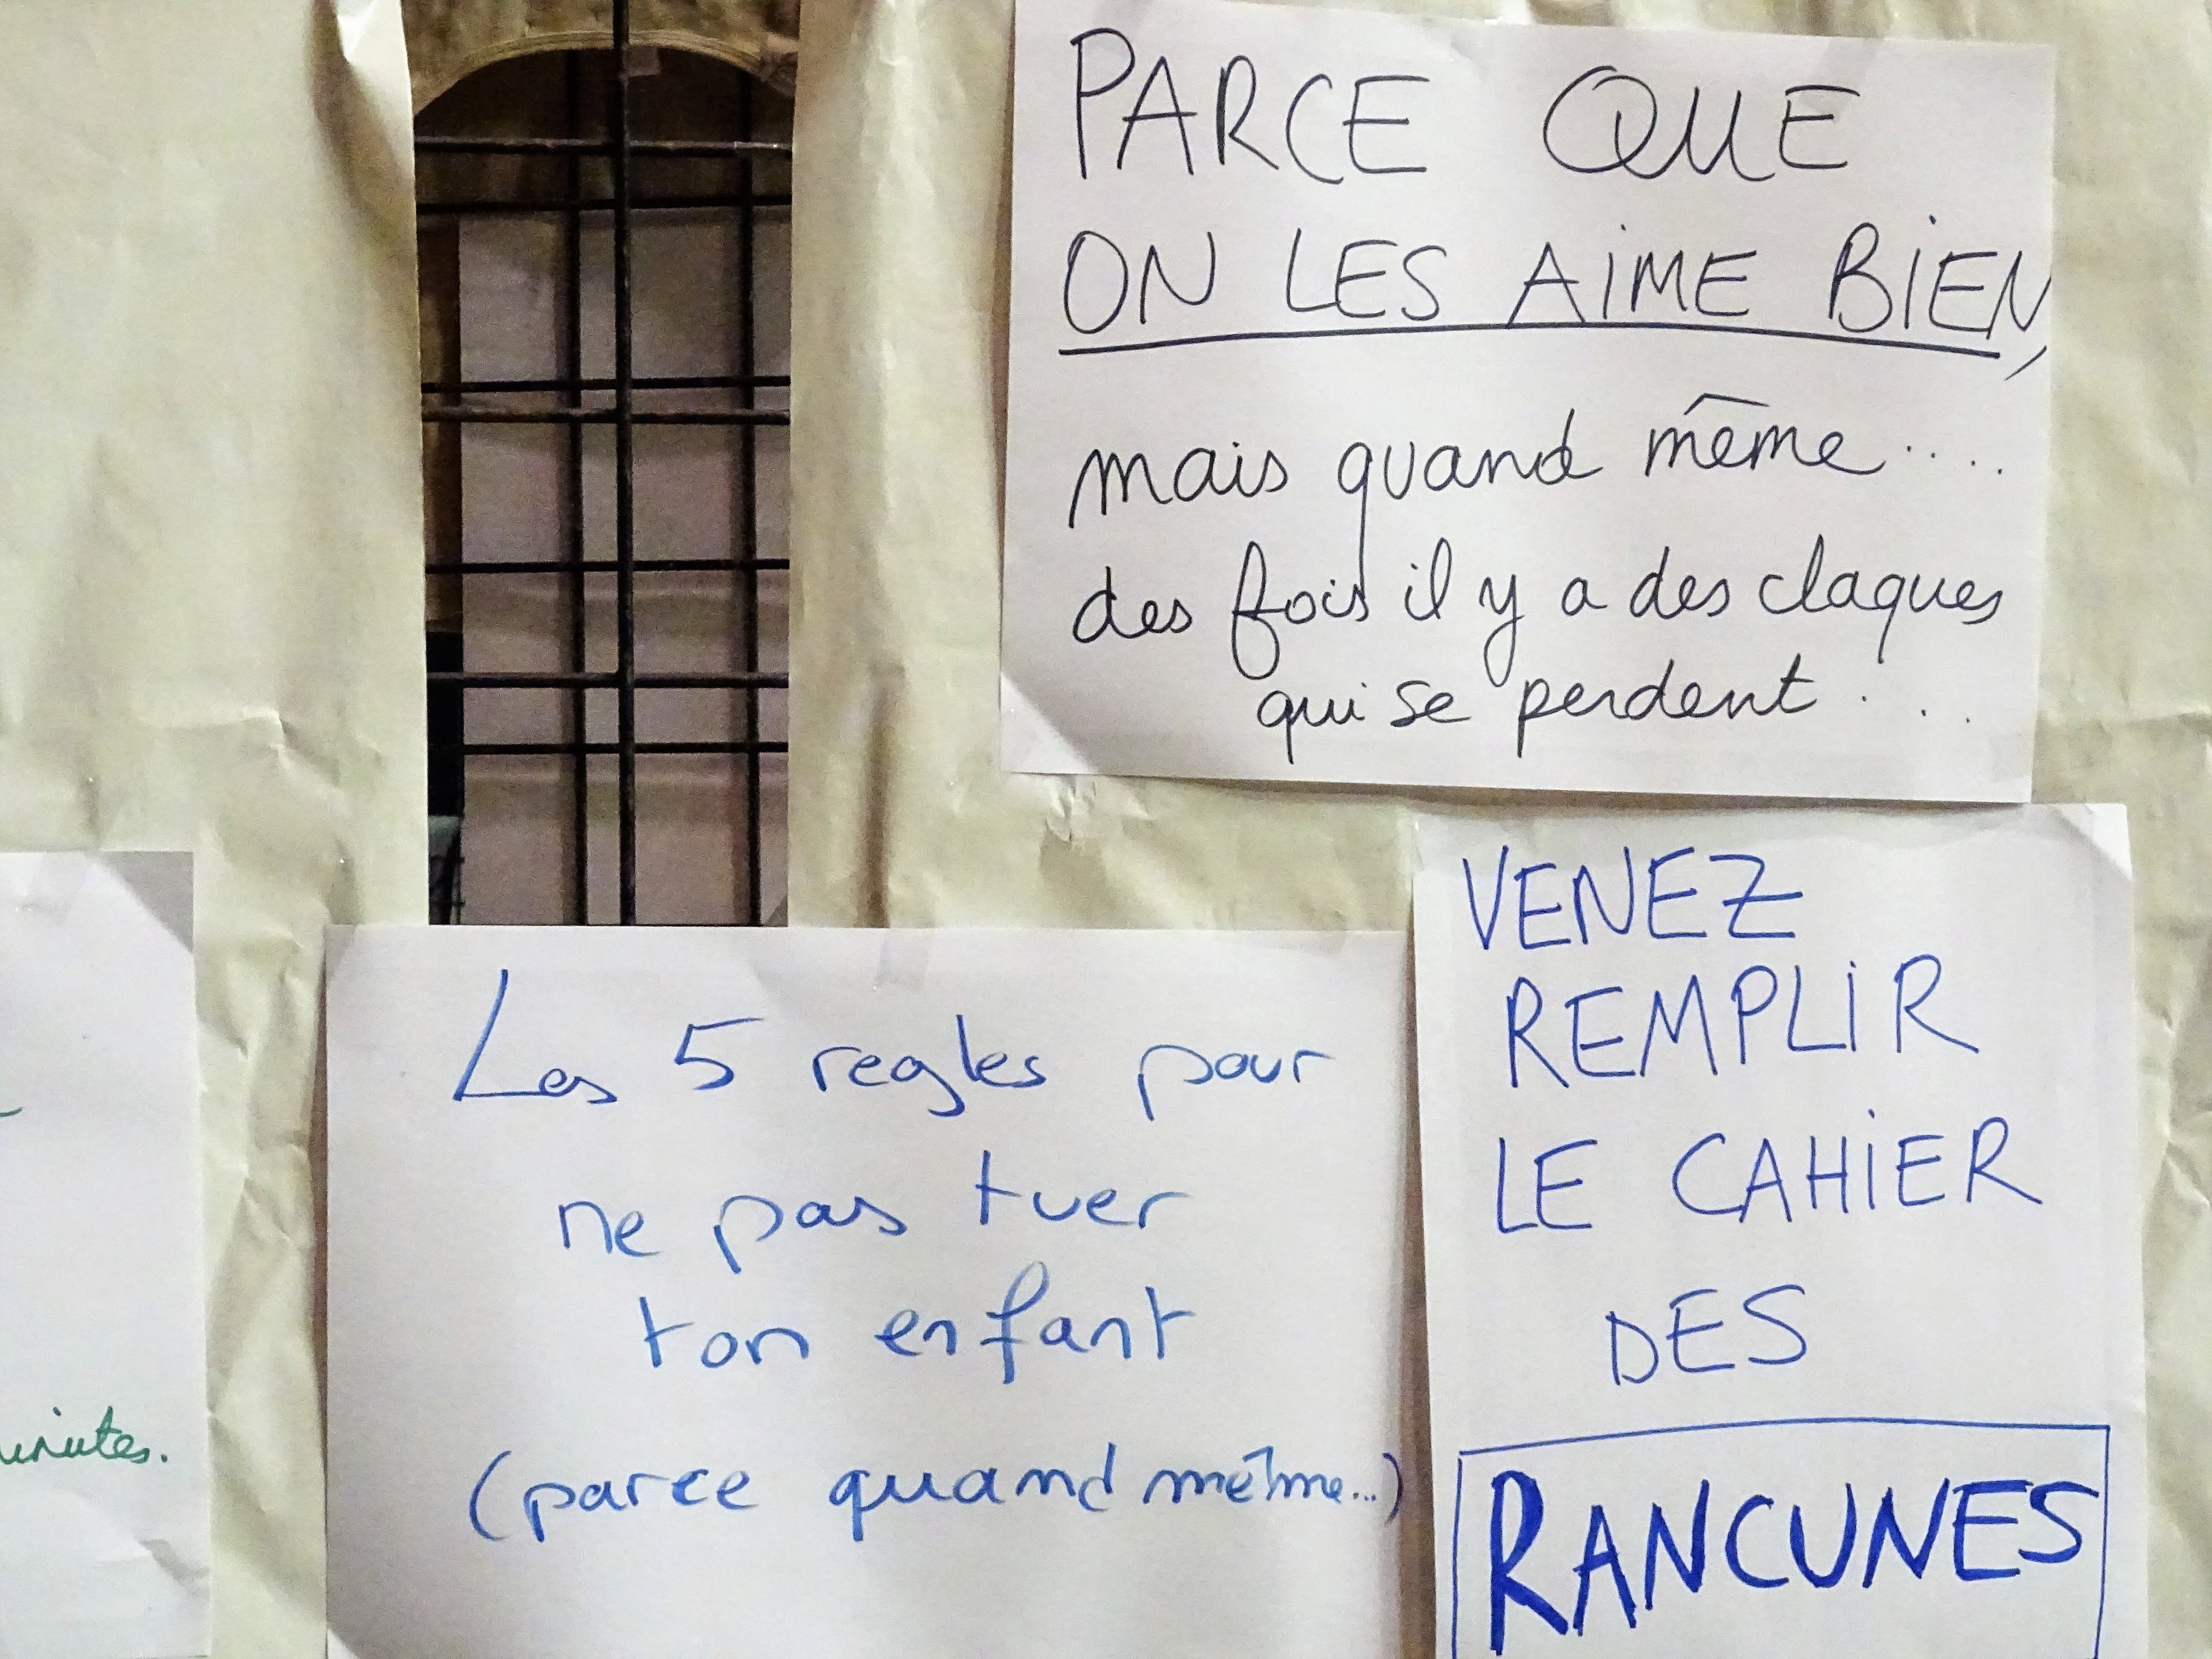 PARCE QUE
ON LES AIME BIEN,
mais quand même....
des fois il y a des claques
qui se perdent...
Les 5 regles pour
ne pas tuer
ton enfant
(parce quand même...)
VENEZ
REMPLIR
LE CAHIER
DES
RANCUNES